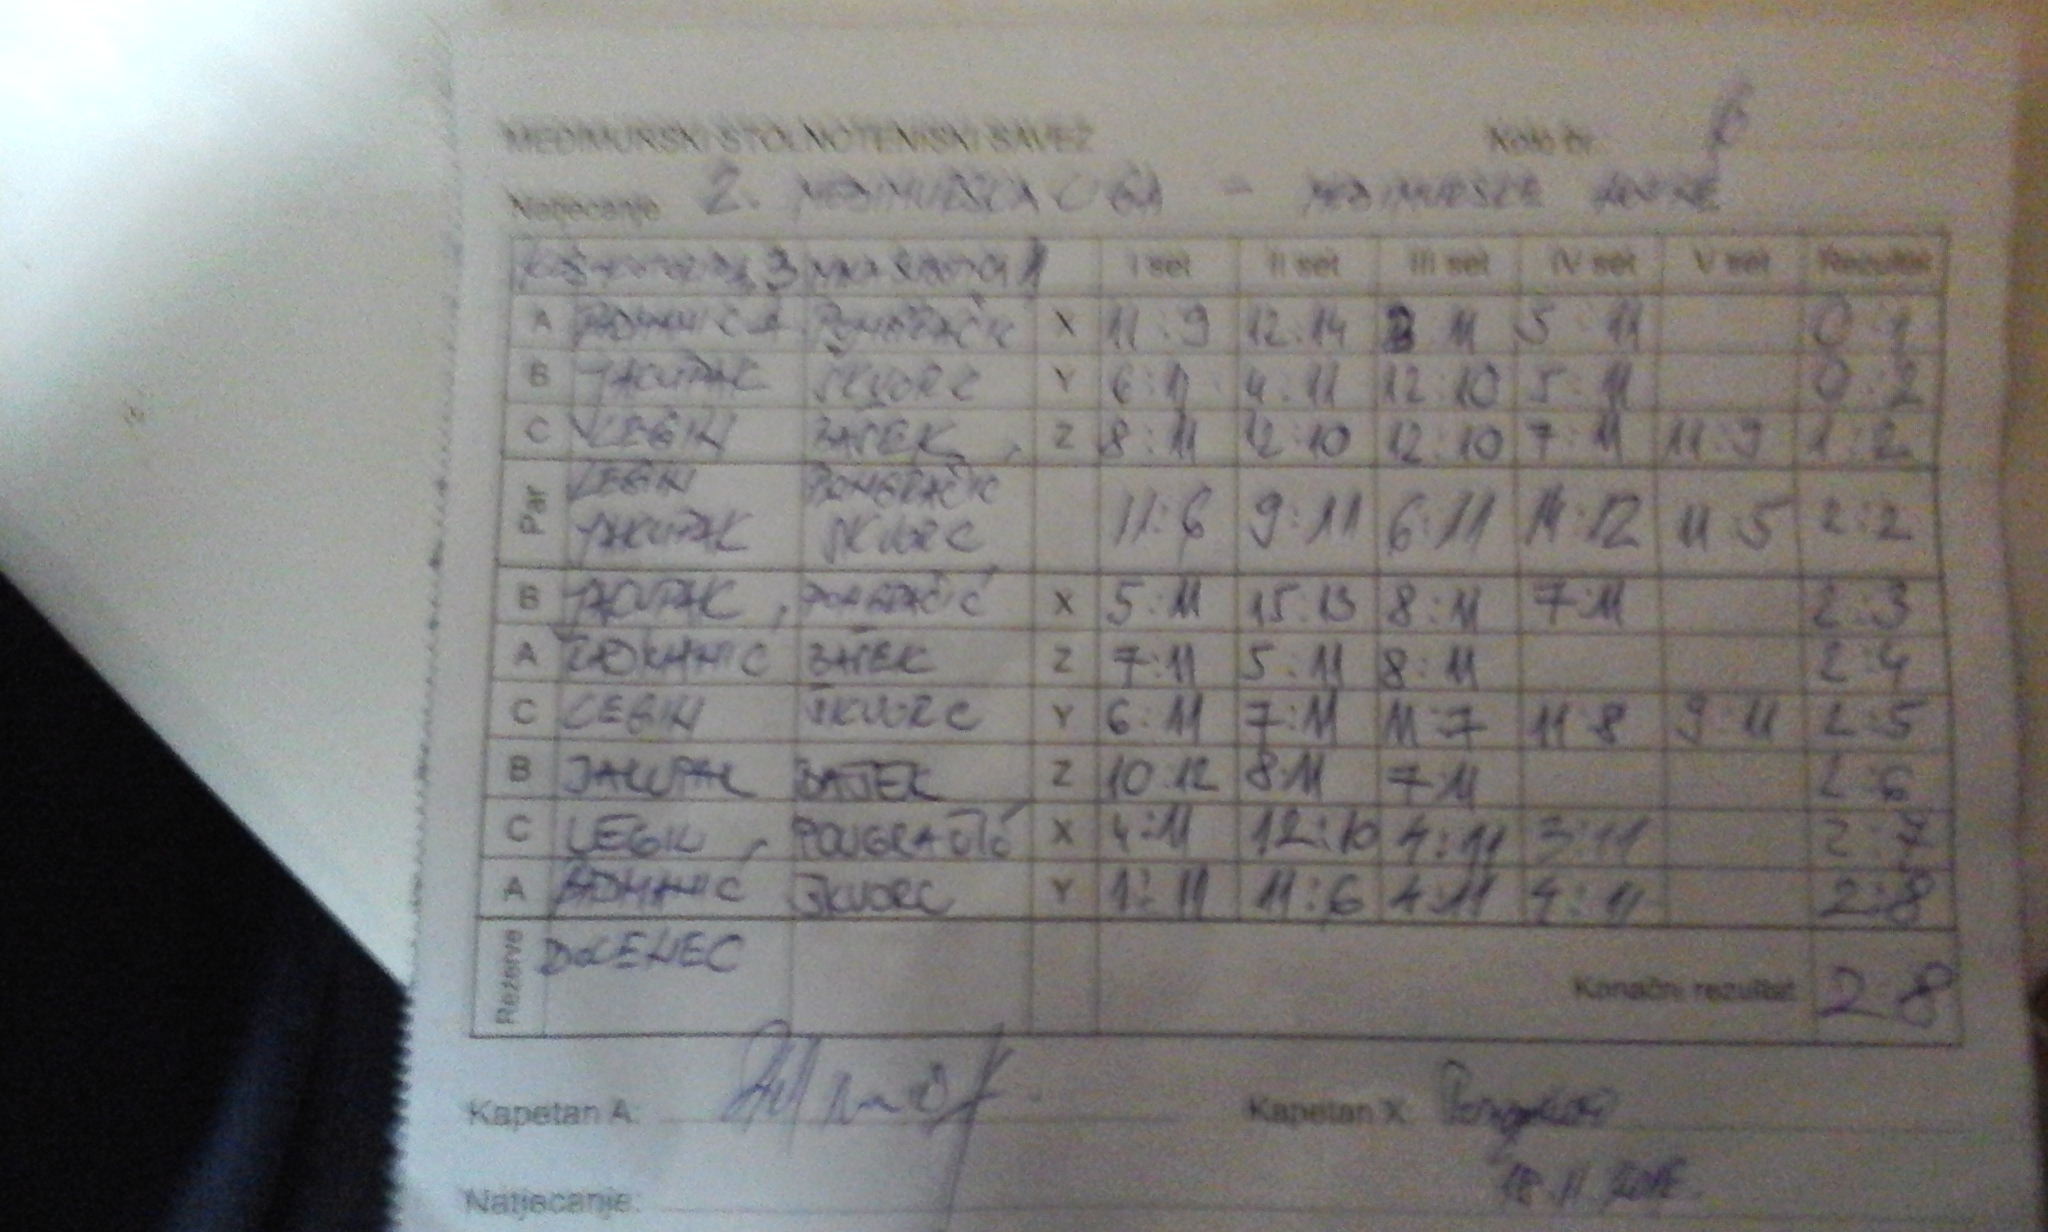 MEĐIMURSKI STOLNOTENISKI SAVEZ Kolo br. 6
Natjecanje 2. MEĐIMURSKA LIGA -
3 1 I set II set III set IV set V set Rezultat
A X 11:9 12:14 3:11 5:11 0:1
B JAKUPAK ŠKVORC Y 6:11 4:11 12:10 5:11 0:2
C LEGIN BATEK Z 8:11 12:10 12:10 7:11 11:9 1:2
Par LEGIN PONGRAČIĆ
JAKUPAK ŠKVORC 11:6 9:11 6:11 14:12 11:5 2:2
B JAKUPAK PONGRAČIĆ X 5:11 15:13 8:11 7:11 2:3
A Z 7:11 5:11 8:11 2:4
C LEGIN ŠKVORC Y 6:11 7:11 11:7 11:8 9:11 2:5
B JAKUPAK BATEK Z 10:12 8:11 7:11 2:6
C LEGIN PONGRAČIĆ X 4:11 12:10 4:11 3:11 2:7
A ŠKVORC Y 1:11 11:6 4:11 4:11 2:8
Rezerve DOLENEC Konačni rezultat 2:8
Kapetan A: Kapetan X:
18.11.
Natjecanje: